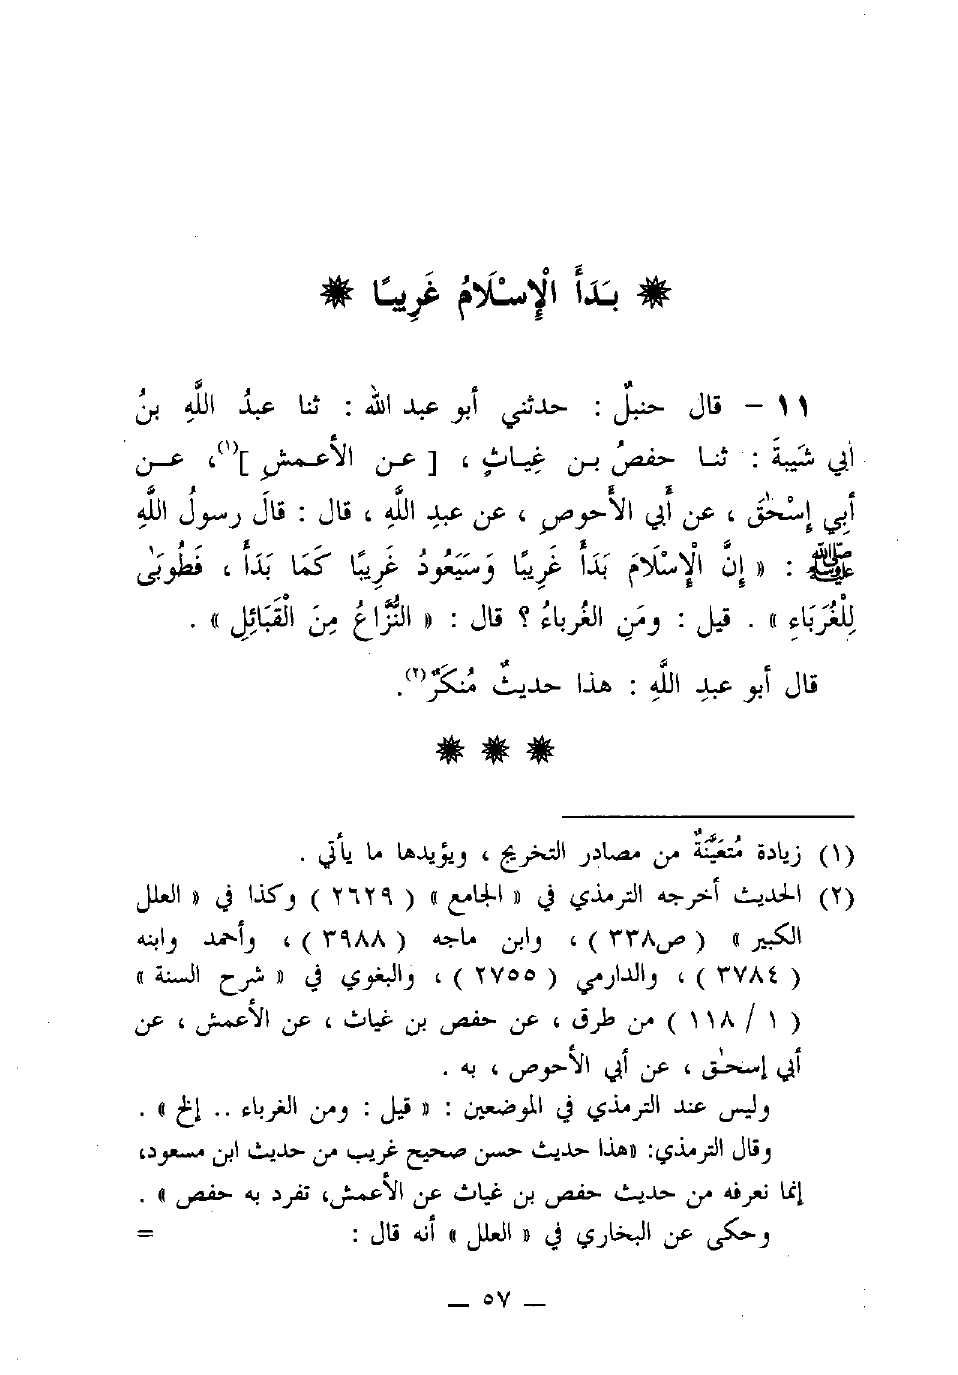 بَدَأَ الْإِسْلَامُ غَرِيبًا
١١ – قال حنبلٌ : حدثني أبو عبد الله : ثنا عبدُ اللَّهِ بنُ
أبي شَيبةَ : ثنا حفصُ بن غِياثٍ ، [ عن الأعمشِ ](١)، عن
أَبِي إِسْحٰقَ ، عن أَبي الأَحوصِ ، عن عبدِ اللَّهِ ، قال : قالَ رسولُ اللَّهِ
ﷺ : « إِنَّ الْإِسْلَامَ بَدَأَ غَرِيبًا وَسَيَعُودُ غَرِيبًا كَمَا بَدَأَ ، فَطُوبَىٰ
لِلْغُرَبَاءِ » . قيل : ومَنِ الغُرباءُ ؟ قال : « النُّزَّاعُ مِنَ الْقَبَائِلِ » .
قال أبو عبدِ اللَّهِ : هذا حديثٌ مُنكَرٌ(٢).
(١) زيادة مُتعَيَّنَةٌ من مصادر التخريج ، ويؤيدها ما يأتي .
(٢) الحديث أخرجه الترمذي في « الجامع » ( ٢٦٢٩ ) وكذا في « العلل
الكبير » ( ص٣٣٨ ) ، وابن ماجه ( ٣٩٨٨ ) ، وأحمد وابنه
( ٣٧٨٤ ) ، والدارمي ( ٢٧٥٥ ) ، والبغوي في « شرح السنة »
( ١ / ١١٨ ) من طرق ، عن حفص بن غياث ، عن الأعمش ، عن
أبي إسحٰق ، عن أبي الأحوص ، به .
وليس عند الترمذي في الموضعين : « قيل : ومن الغرباء .. إلخ » .
وقال الترمذي: «هذا حديث حسن صحيح غريب من حديث ابن مسعود،
إنما نعرفه من حديث حفص بن غياث عن الأعمش، تفرد به حفص » .
وحكى عن البخاري في « العلل » أنه قال : =
– ٥٧ –